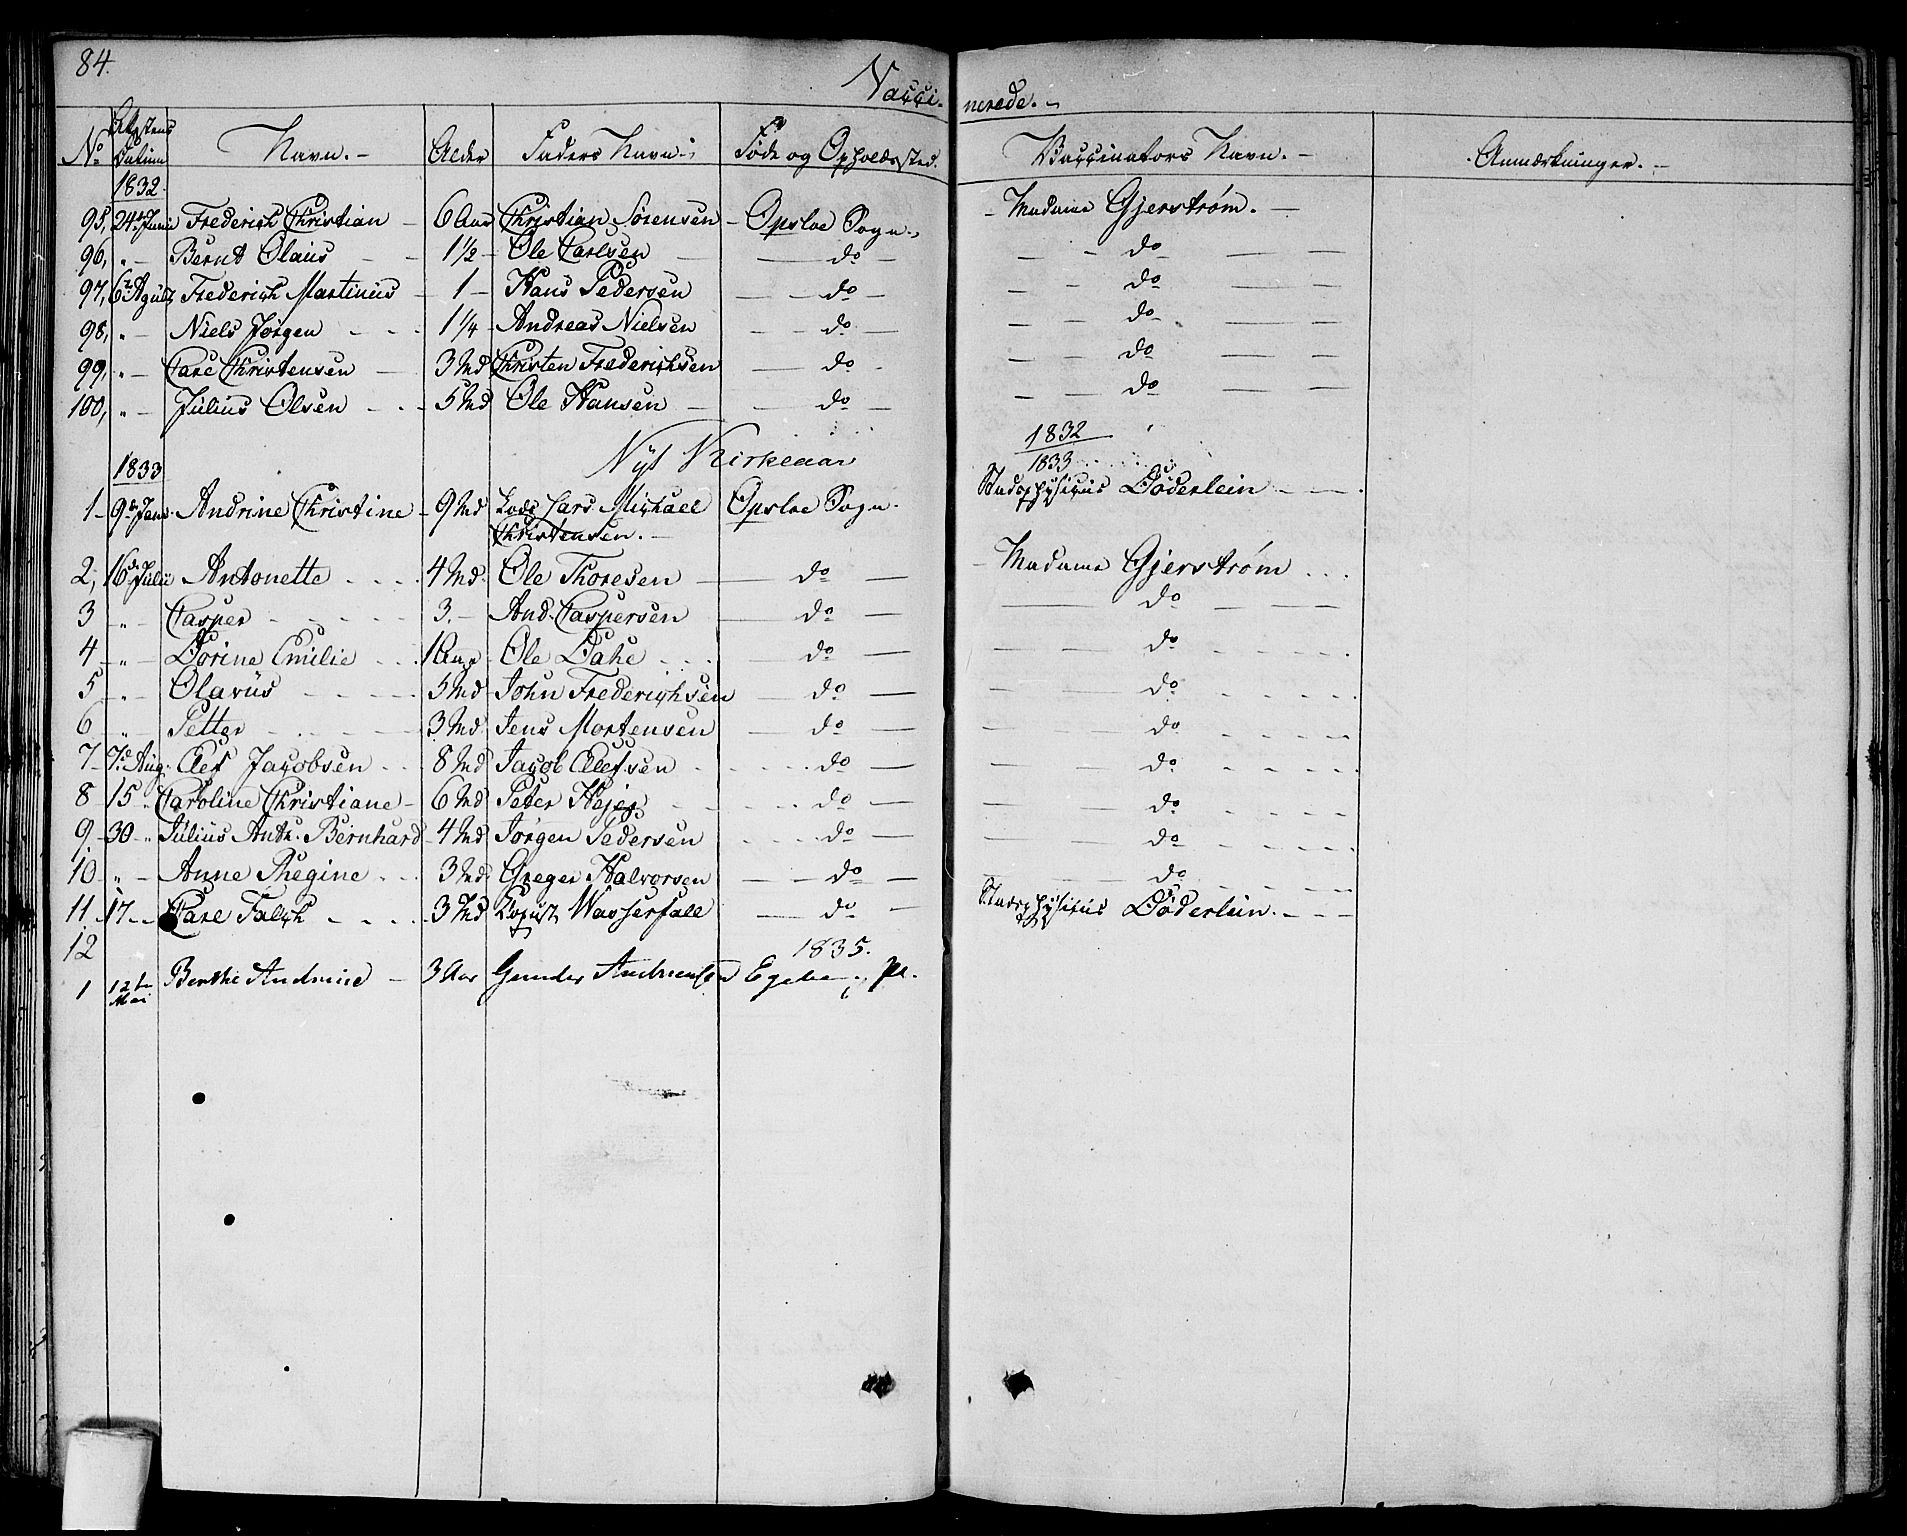 84.
Vacci- nerede. -
No Attestens Datum Navn. - Alder Faders Navn. Føde og Opholdssted. Vaccinators Navn. - Anmærkninger. -
1832.
95, 24de Juni Frederich Christian - 6 Aar Christian Sørensen - Opsloe Sogn. - Madame Gjerstrøm. -
96, " - Bernt Olaus - - 1½ - Ole Carlsen - - do - - - do - -
97, 6te Agust Frederich Martinus - 1 - Hans Pedersen - - do - - - do - -
98, " - Niels Jørgen - - - 1¼ - Andreas Nielsen - - do - - - do - -
99, " - Carl Christensen - 3 Md Christen Frederichsen - do - - - do - -
100, " - Julius Olsen - - - 5 Md Ole Hansen - - do - - - do - -
1832
1833 Nyt Kirkeaar 1833
1 - 9de Janr. Andrine Christine - 9 Md Lods Lars Michael Opsloe Sogn. Stadsphysicus Døderlein - - -
Christensen. -
2, 16de Julii Antonette - - - 4 Md. Ole Thoresen - do - - Madame Gjerstrøm - - -
3 - " - Casper - - - - 3. - And. Caspersen - do - - do - - -
4 - " - Dorine Emilie - - 1 Aar Ole Dahl - - - do - - - do - - -
5 - " - Olavus - - - 5 Md John Frederichsen - do - - do - - -
6 " Petter - - - - 3 Md Jens Mortensen - do - - - do - - -
7 - 7de Aug. Elef Jacobsen - - 8 Md Jacob Elefsen - - - - do - - - do - - -
8 15 " Caroline Christiane - 6 Md Peter Hejer - - - - do - - - do - - -
9. - 30 - " Julius Anth. Bernhard - 4 Md Jørgen Pedersen - - - do - - - do - - -
10 - " - Anne Regine - - 3 Md Greger Halvorsen - - do - - do - - -
11. 17 - - Carl Falch - - - - 3 Md August Wasserfall - do - Stadsphysicus Døderlein. - - -
12 1835.
1 12te Mai Berthe Andrine - 3 Aar Gunder Andreasen Egeberg Pl.